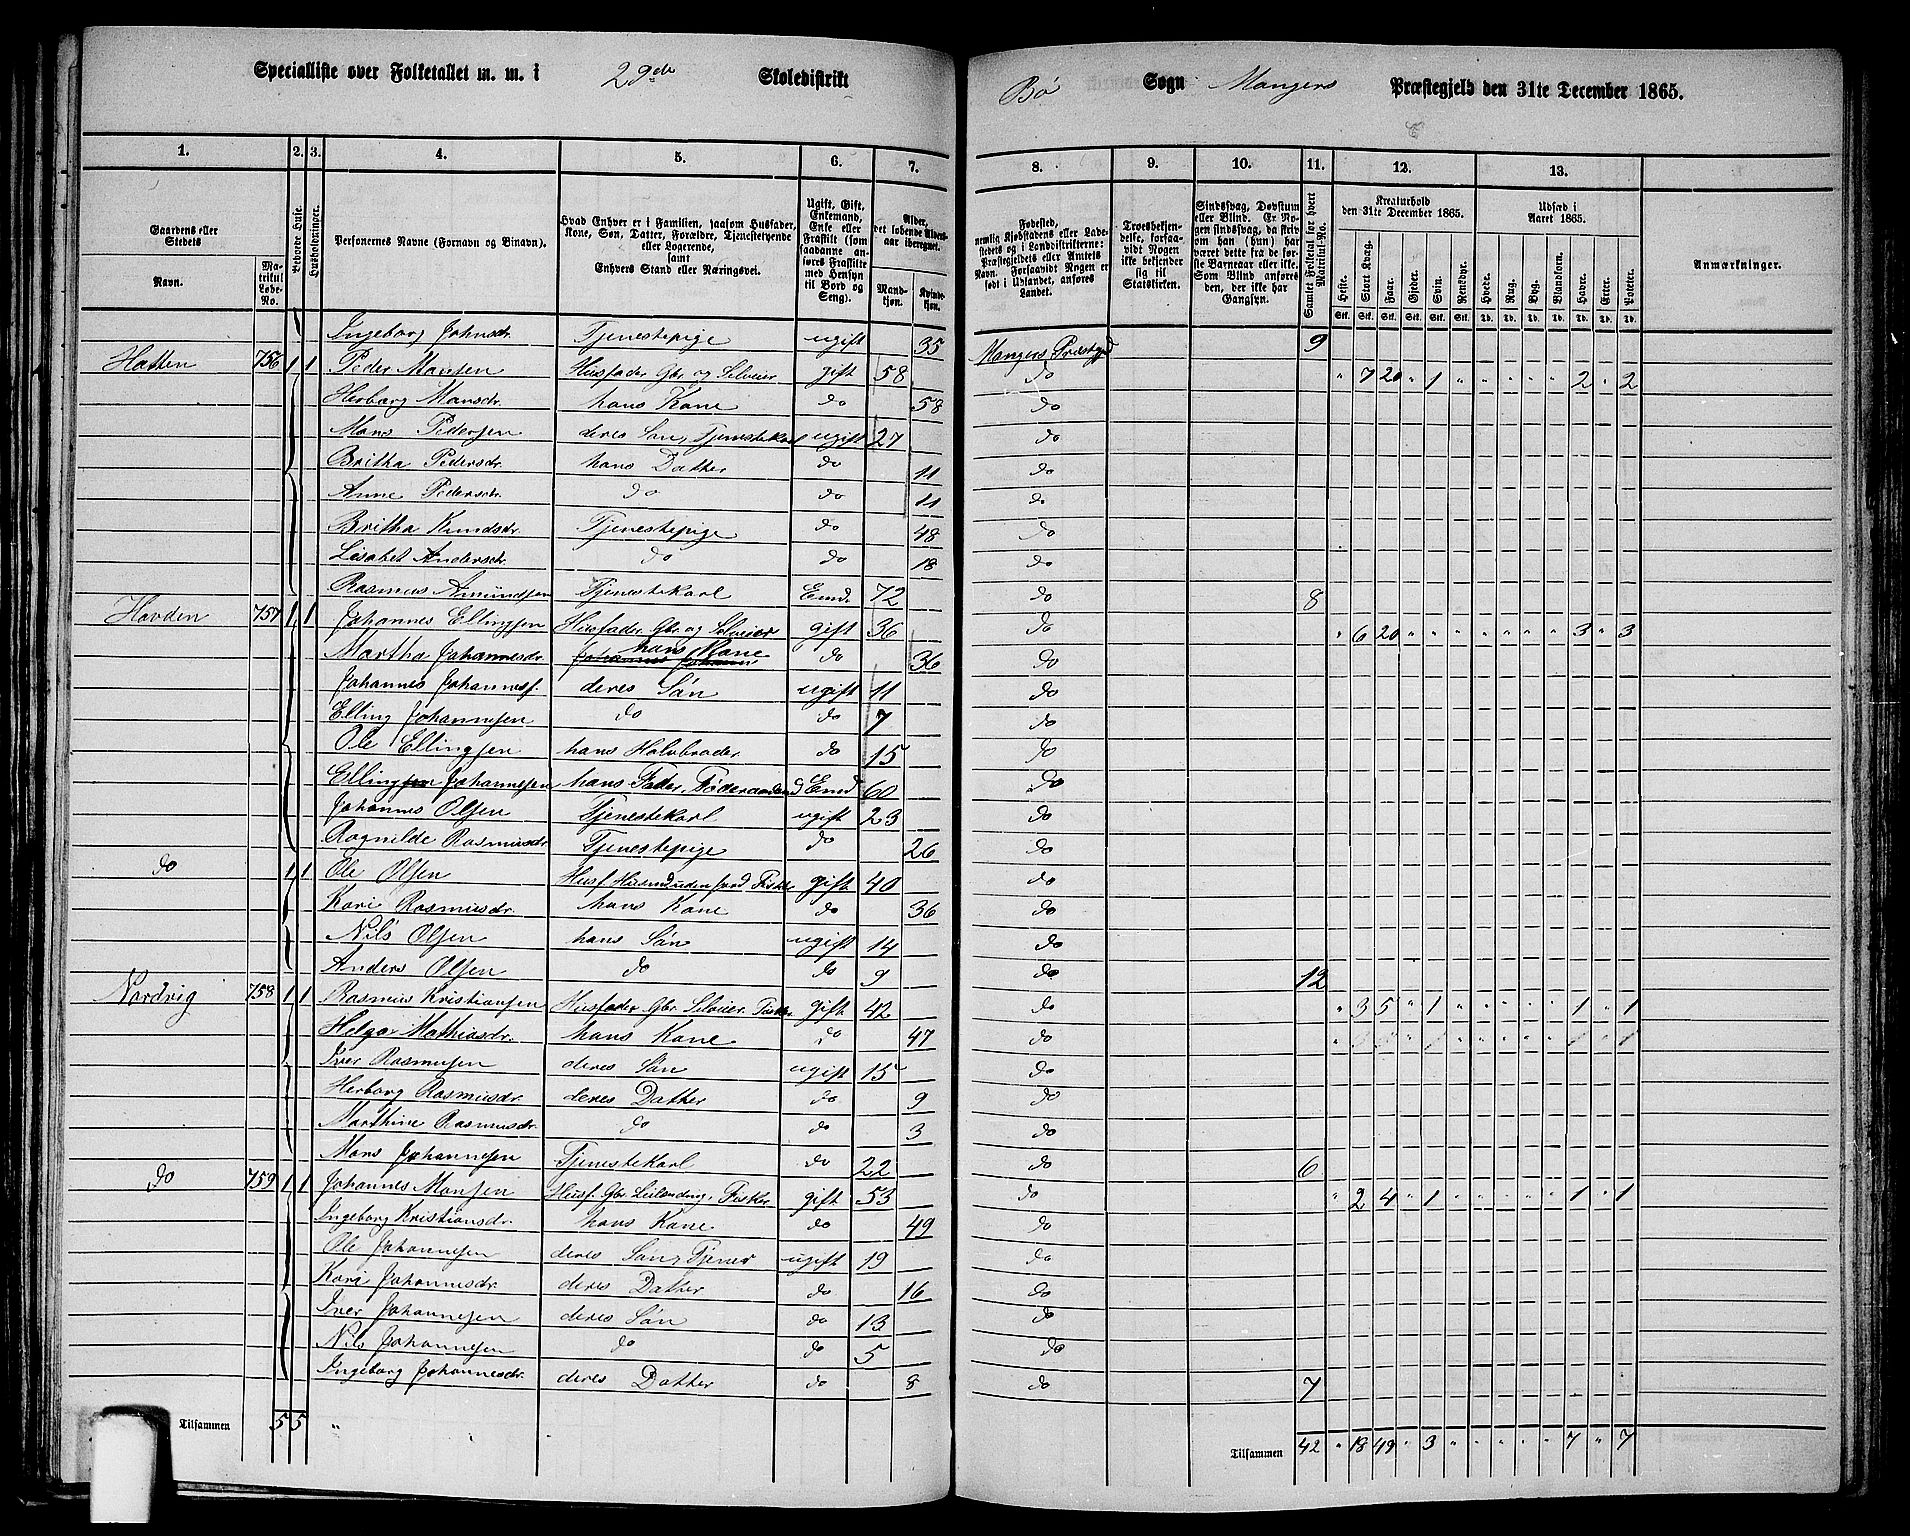 Specialliste over Folketallet m. m. i 29de Skoledistrikt Bö Sogn Mangers Præstegjeld den 31te December 1865.
1. 2. 3. 4. 5. 6. 7. 8. 9. 10. 11. 12. 13.
Gaardens eller Stedets Navn. Matrikul Løbe-No. Bebœde Huse. Husholdninger. Personernes Navne (Fornavn og Binavn). Hvad Enhver er i Familien, saasom Husfader, Kone, Søn, Datter, Forældre, Tjenestetyende eller Logerende, samt Enhvers Stand eller Næringsvei. Ugift, Gift, Enkemand, Enke eller Fraskilt (som saadanne anføres Fraskilte med Hensyn til Bord og Seng). Alder, det løbende Aldersaar iberegnet. Mandkjøn. Kvindekjøn.
Fødested, nemlig Kjøbstadens eller Ladestedets og i Landdistrikterne: Præstegjeldets eller Amtets Navn. Forsaavidt Nogen er født i Udlandet, anføres Landet. Troesbekjendelse, forsaavidt Nogen ikke bekjender sig til Statskirken. Sindssvag, Døvstum eller Blind. Er Nogen sindssvag, da skriv om han (hun) har været dette fra de første Barneaar eller ikke. Som Blind anføres den, der ikke har Gangsyn. Samlet Folketal for hvert Matrikul-No. Kreaturhold den 31te December 1865. Heste. Stort Kvæg. Faar. Gjeder. Svin. Rensdyr. Udsæd i Aaret 1865. Hvede. Rug. Byg. Blandkorn. Havre. Erter. Poteter. Anmærkninger.
Ingeborg Johnsdr. Tjenestepige ugift 35 Mangers Præstegjd 9
Hatten 756 1 1 Peder Monsen Husfader Gbr. og Selveier gift 58 do " 7 20 " 1 " " " " " 2 " 2
Herborg Monsdr. hans Kone do 58 do
Mons Pedersen deres Søn, Tjenestekarl ugift 27 do
Britha Pedersdr. hans Datter do 11 do
Anne Pedersdr. do do 11 do
Britha Knudsdr. Tjenestepige do 48 do
Lisabet Andersdr. do do 18 do
Rasmus Amundsen Tjenestekarl Emd. 72 do 8
Havden 757 1 1 Johannes Ellingsen Husfader Gbr. og Selveier gift 36 do " 6 20 " " " " " " " 3 " 3
Martha Johannesdr. hans Kone do 36 do
Johannes Johannesf. deres Søn ugift 11 do
Elling Johannesen do do 7 do
Ole Ellingsen hans Halvbroder do 15 do
Elling Johannesen hans Fader, Føderaadsmd Emd 60 do
Johannes Olsen Tjenestekarl ugift 23 do
Ragnilde Rasmusdr Tjenestepige do 26 do
do 1 1 Ole Olsen Husf. Husmd uden Jord Fisker gift 40 do
Kari Rasmusdr. hans Kone do 36 do
Nils Olsen hans Søn ugift 14 do
Anders Olsen do do 9 do 12
Nordvig 758 1 1 Rasmus Kristiansen Husfader Gbr. Selveier Fisker gift 42 do " 3 5 " 1 " " " " " 1 " 1
Helga Mathiasdr. hans Kone do 47 do
Iver Rasmusen deres Søn ugift 15 do
Herborg Rasmusdr. deres Datter do 9 do
Marthine Rasmusdr. do do 3 do
Mons Johannesen Tjenestekarl do 22 do 6
do 759 1 1 Johannes Monsen Husf. Gbr. Leilending, Fisker gift 53 do " 2 4 " 1 " " " " " 1 " 1
Ingeborg Kristiansdr. hans Kone do 49 do
Ole Johannesen deres Søn, Tjener ugift 19 do
Kari Johannesdr. deres Datter do 16 do
Iver Johannesen deres Søn do 13 do
Nils Johannesen do do 5 do
Ingeborg Johannesdr. deres Datter do 8 do 7
Tilsammen 5 5 " Tilsammen 42 " 18 49 " 3 " " " " " 7 " 7